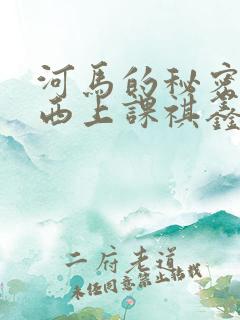 河馬的秘密
西上課祺鑫
二府老道
未经同意禁止转载